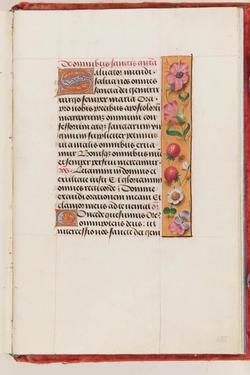 De omnibus sanctis anta
Saluator mundi
salua nos omnes
sancta dei genitrix
uirgo semper maria Ora
pro nobis precibus apostolorum
martirum omnium con
fessorum atque sanctarum uir
ginum suppliciter petimus
ut a malis omnibus erua
mur Bonisque omnibus nunc
et semper perfrui mereamur
Letamini in domino et
exultate iusti Et gloriamini
omnes recti corde Domine
exaudi orationem meam Et
clamor meus ad te ueniat
Concede quesumus
omnipotens deus ut
intercessio nos sancte dei geni